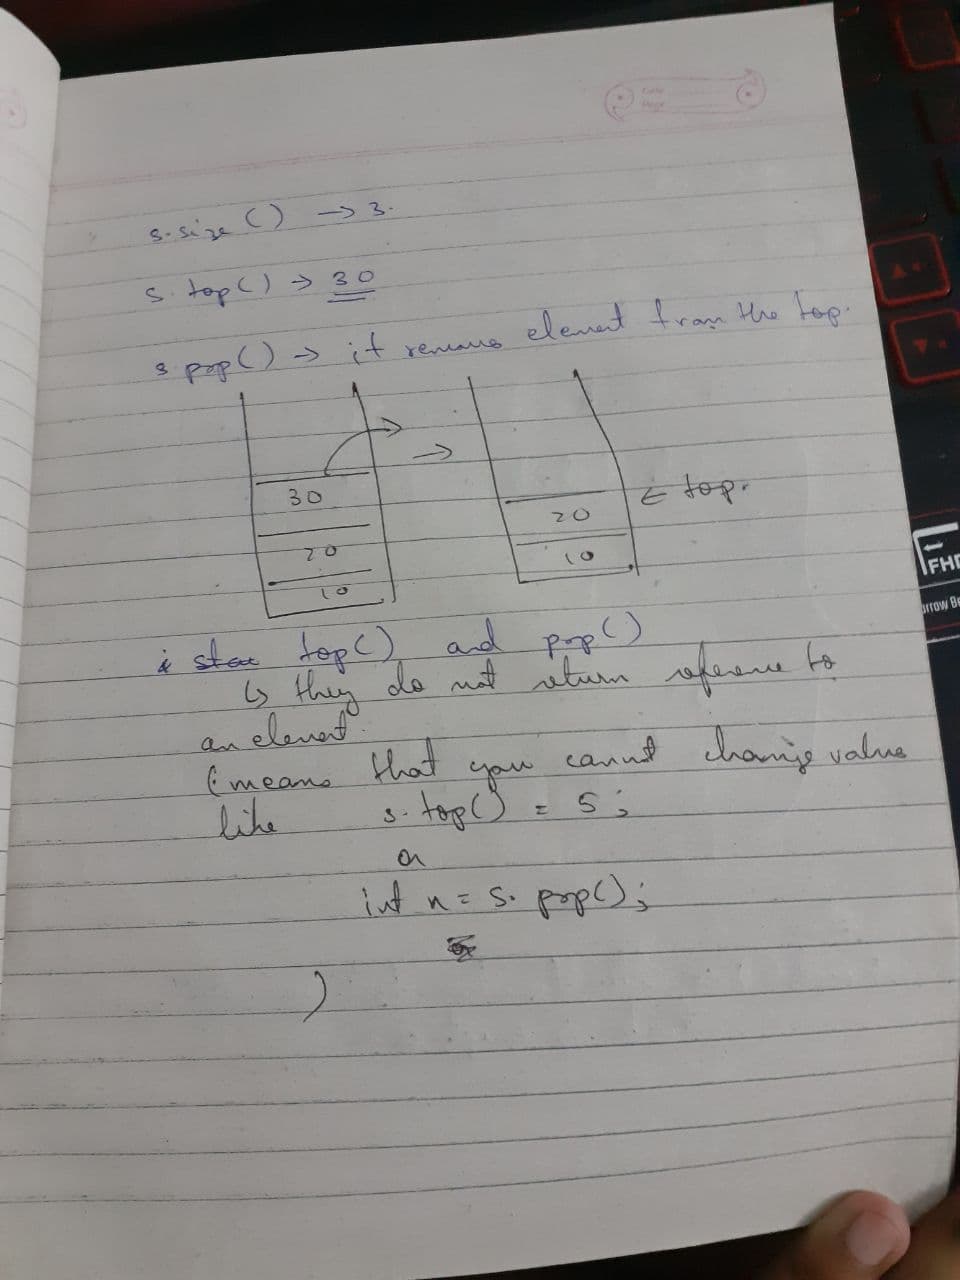 s.size() → 3.
s.top() → 30
s pop() → it removes element from the top.
30
20
10
→
20
10
← top.
top() and pop()
↳ they do not return reference to
an element.
(means that you cannot change value
like s.top() = 5;
or
int n = s.pop();
)
FHD
rrow Be